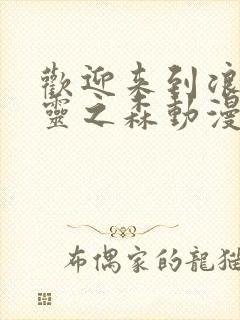 歡迎来到浪
靈之森動漫
布偶家的龍猫